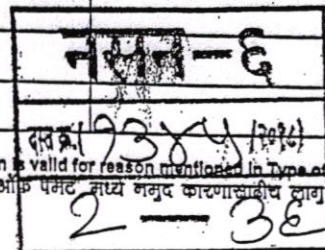 नसन - ६
दस्त क्र. (१३४५ (२०१८)
n is valid for reason mentioned in Type of
ऑफ पेमेंट मध्ये नमुद कारणासाठीच लागु
2 — 36